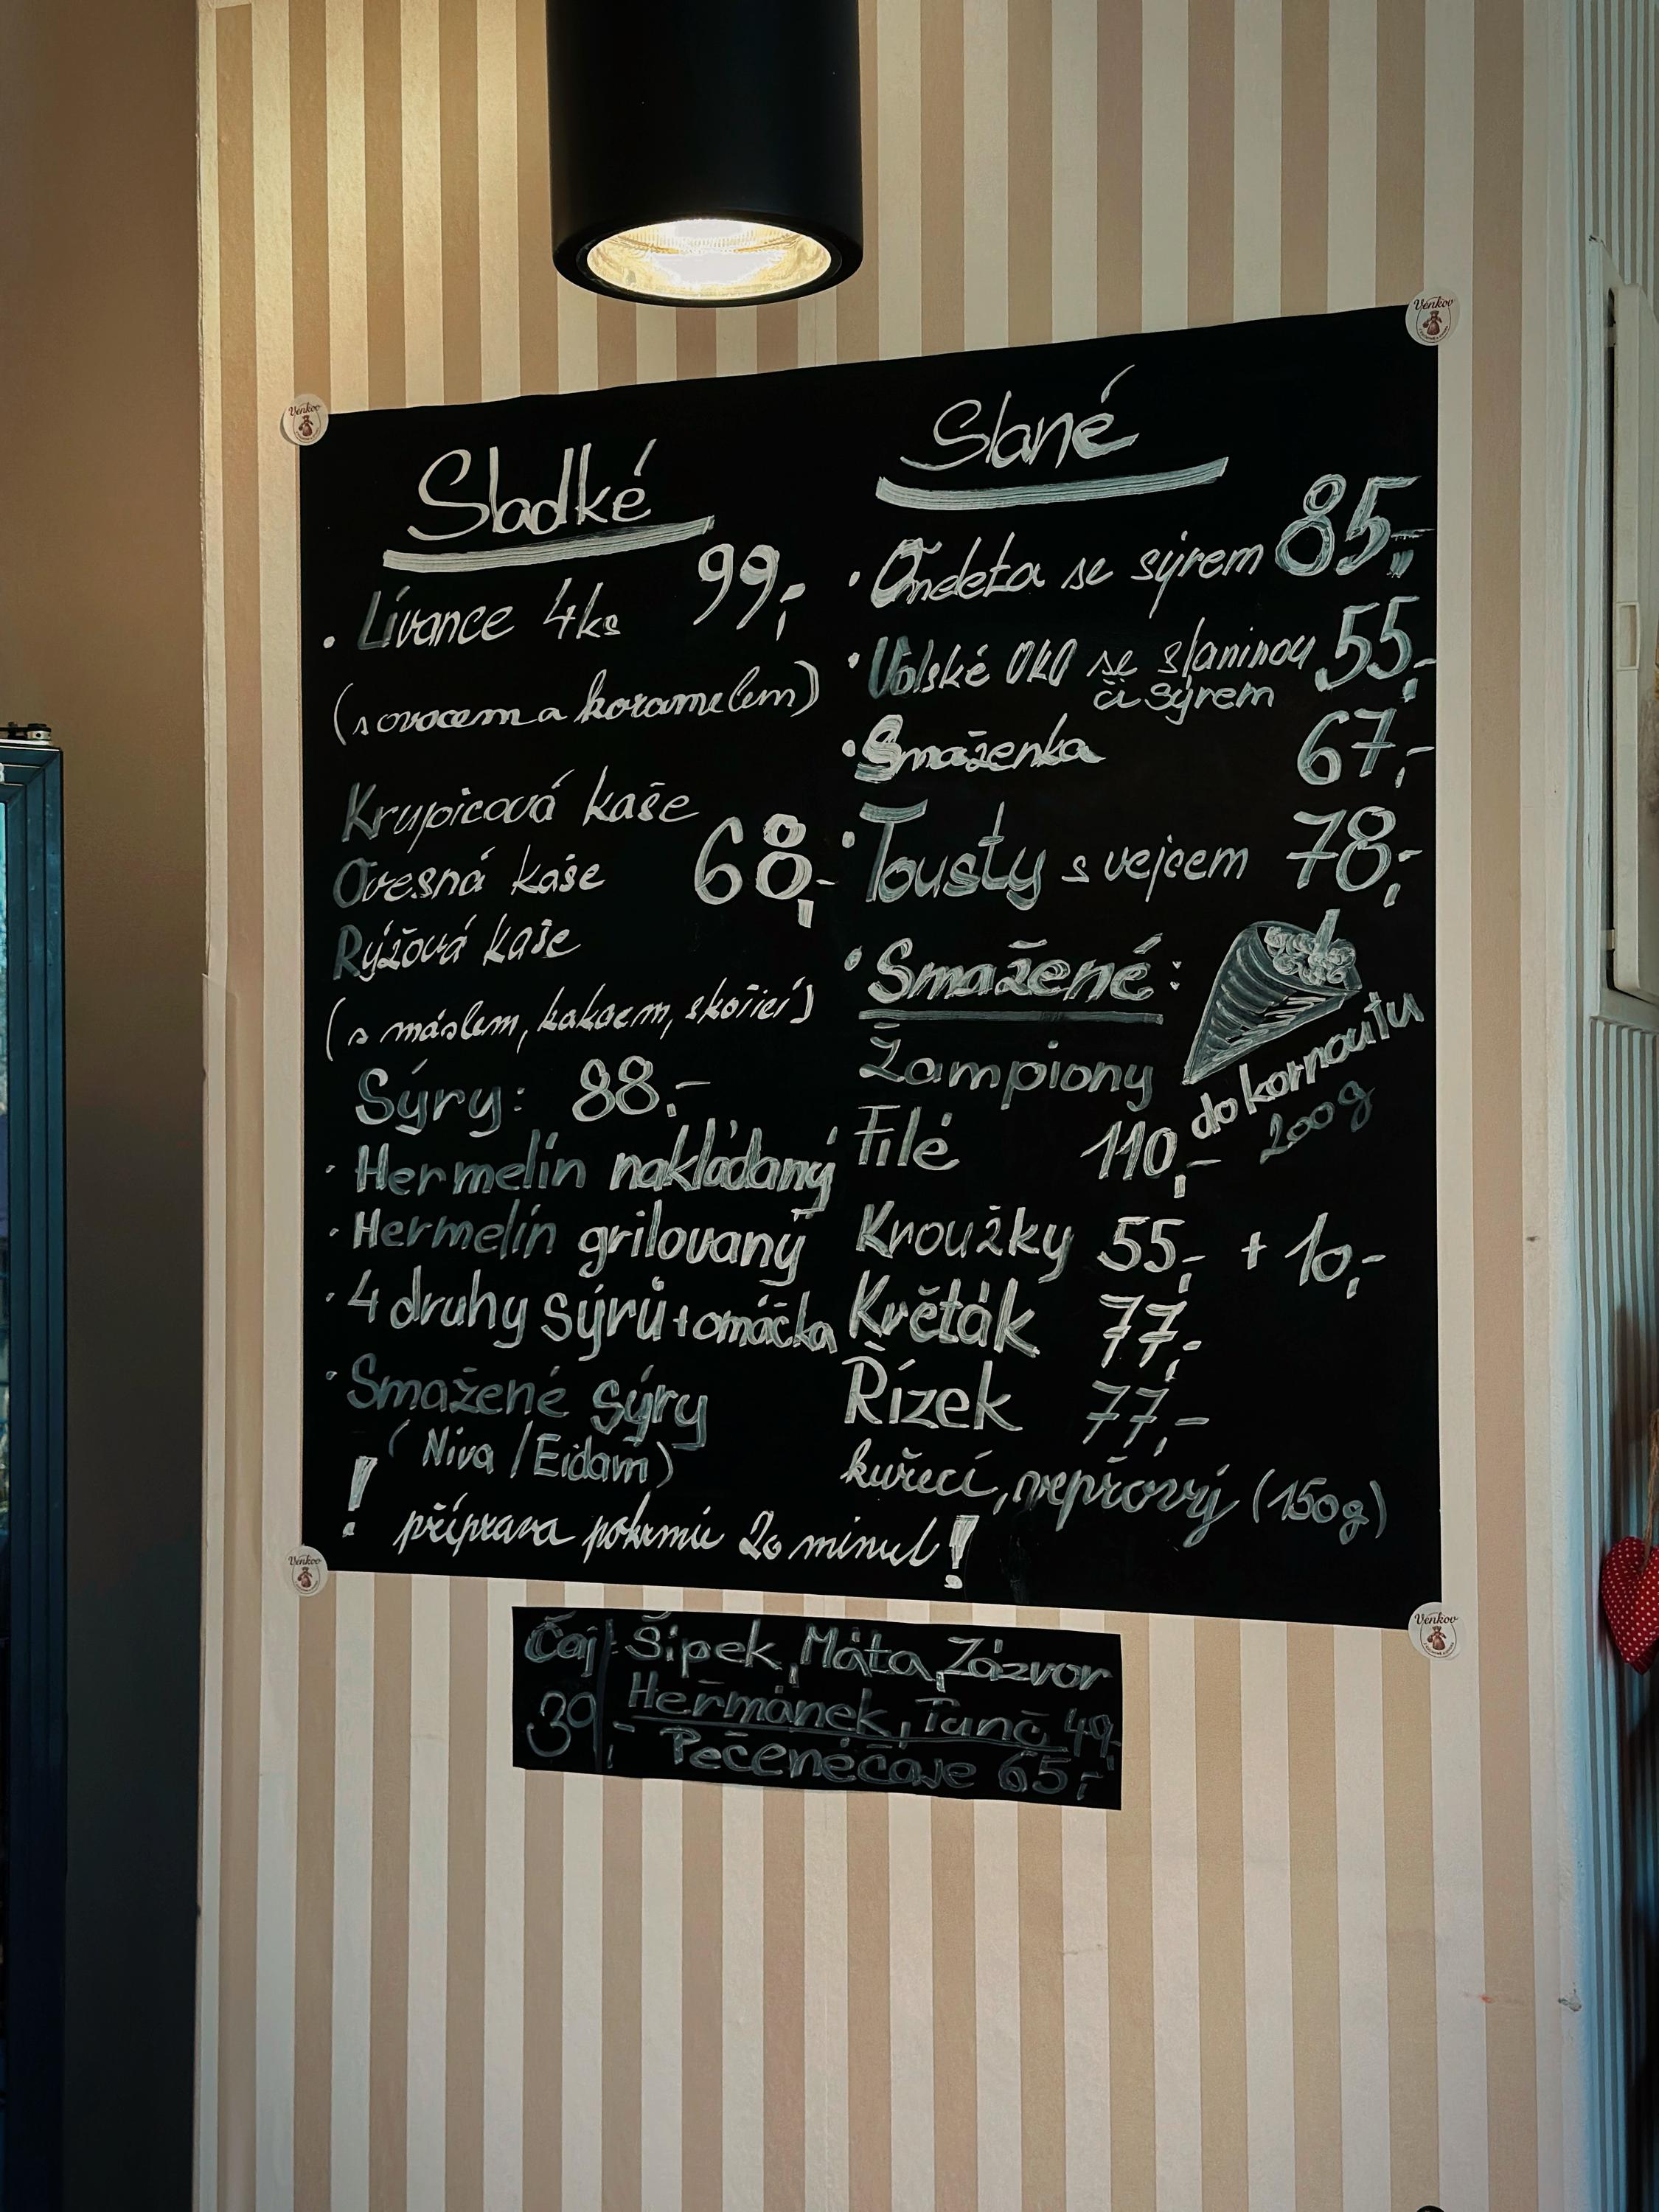 Sladké
. Lívance 4ks 99,-
(s ovocem a karamelem)
Krupicová kaše
Ovesná kaše 68,-
Rýžová kaše
(s máslem, kakaem, skořicí)
Sýry: 88,-
· Hermelín nakládaný
· Hermelín grilovaný
· 4 druhy sýrů + omáčka
· Smažené sýry
(Niva /Eidam)
! příprava pokrmu 20 minut!
Slané
· Omeleta se sýrem 85,-
· Volské OKO se slaninou 55,-
či sýrem
· Smaženka 67,-
· Tousty s vejcem 78,-
· Smažené:
Žampiony
Filé 110,-
do kornoutu
200g
Kroužky 55,- + 10,-
Květák 77,-
Řízek 77,-
kuřecí, vepřový (150g)
Čaj: Šípek, Máta, Zázvor
39,- Heřmánek,
Pečené čaje 65,-
Venkov
Venkov
Venkov
Venkov